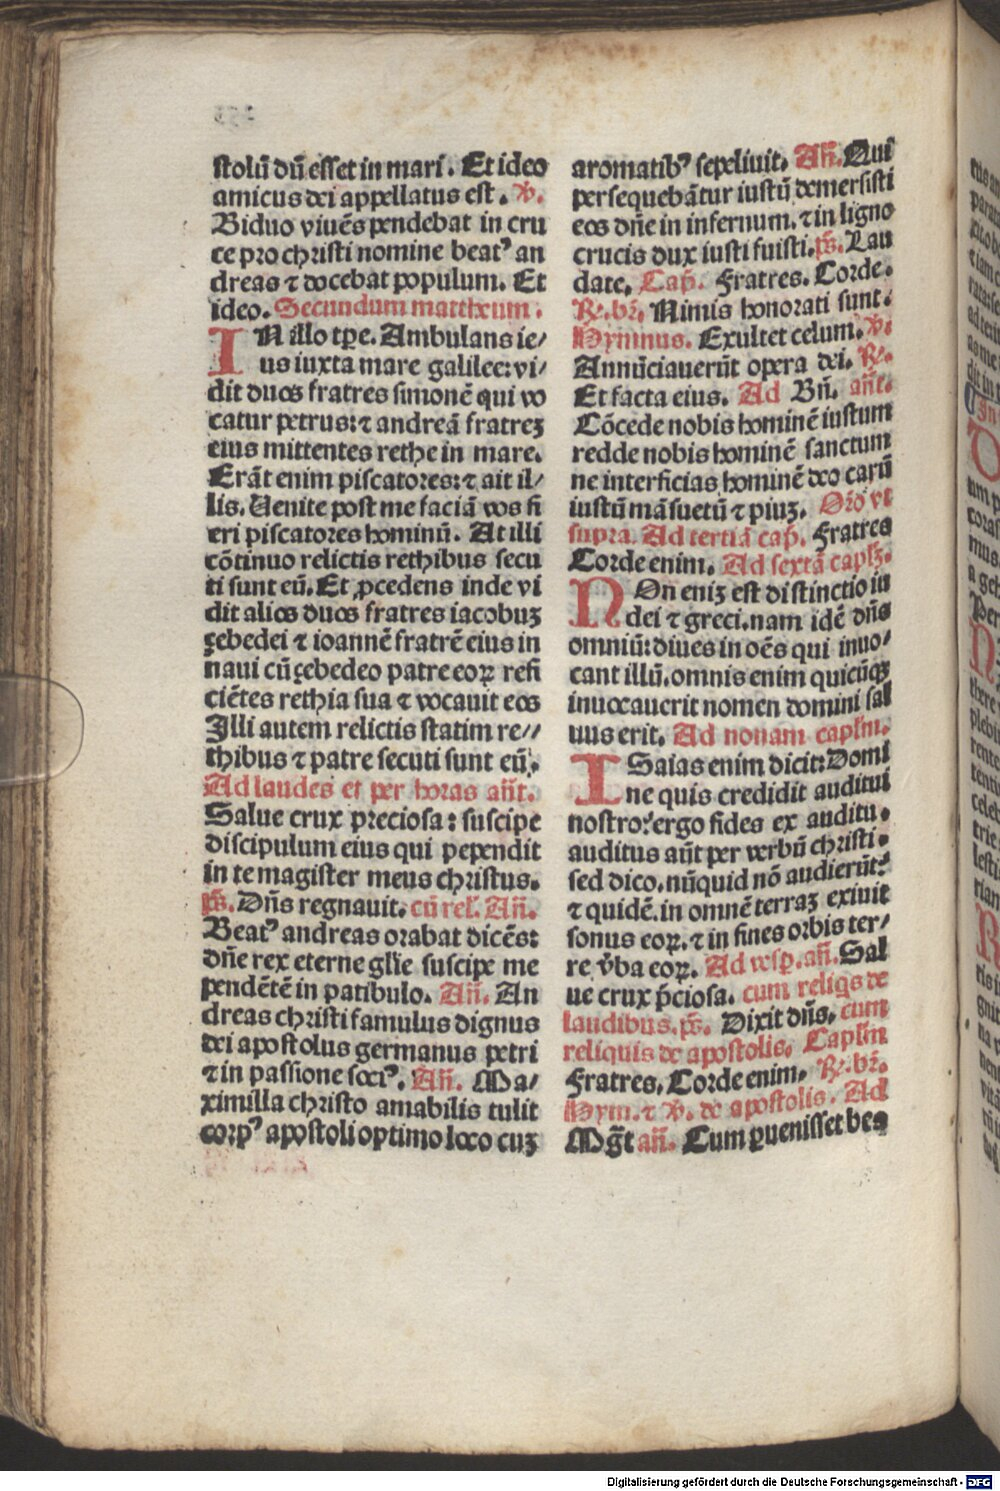 stolū dū esset in mari. Et ideo
amicus dei appellatus est. ℣.
Biduo viuēs pendebat in cru
ce pro christi nomine beatꝰ an
dreas ⁊ docebat populum. Et
ideo. Secundum mattheum.
IN illo tꝑe. Ambulans ie/
us iuxta mare galilee: vi/
dit duos fratres simonē qui vo
catur petrus: ⁊ andreā fratreꝫ
eius mittentes rethe in mare.
Erāt enim piscatores: ⁊ ait il/
lis. Uenite post me faciā vos fi
eri piscatores hominū. At illi
cōtinuo relictis rethibus secu
ti sunt eū. Et ꝓcedens inde vi
dit alios duos fratres iacobuꝫ
çebedei ⁊ ioannē fratrē eius in
naui cū çebedeo patre eoꝝ refi
ciētes rethia sua ⁊ vocauit eos
Illi autem relictis statim re//
thibus ⁊ patre secuti sunt eū.
Ad laudes et per horas añt.
Salue crux preciosa: suscipe
discipulum eius qui pependit
in te magister meus christus.
p̄s. Dñs regnauit. cū rel'. Añ.
Beatꝰ andreas orabat dicēs:
dñe rex eterne gl̄ie suscipe me
pendētē in patibulo. Añ. An
dreas christi famulus dignus
dei apostolus germanus petri
⁊ in passione sociꝰ. Añ. Ma/
ximilla christo amabilis tulit
corpꝰ apostoli optimo loco cuꝫ
aromatibꝰ sepeliuit. Añ. Qui
persequebātur iustū demersisti
eos dñe in infernum. ⁊ in ligno
crucis dux iusti fuisti. p̄s. Lau
date. Cap̄. Fratres. Corde.
℟. br̄. Nimis honorati sunt.
Hymnus. Exultet celum. ℣.
Annūciauerūt opera dei. ℟.
Et facta eius. Ad Bñ. añt.
Cōcede nobis hominē iustum
redde nobis hominē sanctum
ne interficias hominē deo carū
iustū māsuetū ⁊ piuꝫ. Orō vt
supra. Ad tertiā cap̄. Fratres
Corde enim. Ad sextā capl̄ꝫ.
NOn eniꝫ est distinctio iu
dei ⁊ greci. nam idē dñs
omniū: diues in oēs qui inuo/
cant illū. omnis enim quicūqꝫ
inuocauerit nomen domini sal
uus erit. Ad nonam capl̄m.
ISaias enim dicit: Domi
ne quis credidit auditui
nostro? ergo fides ex auditu.
auditus aūt per verbū christi.
sed dico. nūquid nō audierūt?
⁊ quidē. in omnē terraꝫ exiuit
sonus eoꝝ. ⁊ in fines orbis ter/
re v̄ba eoꝝ. Ad vesꝑ. añ. Sal
ue crux p̄ciosa. cum reliqs de
laudibus. p̄s. Dixit dñs. cum
reliquis de apostolis. Capl̄m
Fratres. Corde enim. ℟. br̄.
Hym. ⁊ ℣. de apostolis. Ad
Mg̃t añ. Cum ꝑuenisset bea
Digitalisierung gefördert durch die Deutsche Forschungsgemeinschaft - DFG